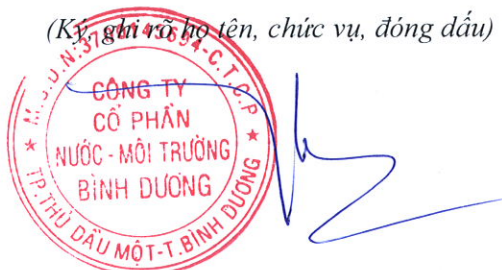 (Ký, ghi rõ họ tên, chức vụ, đóng dấu)
CÔNG TY
CỔ PHẦN
NƯỚC - MÔI TRƯỜNG
BÌNH DƯƠNG
TP.THỦ DẦU MỘT-T.BÌNH DƯƠNG